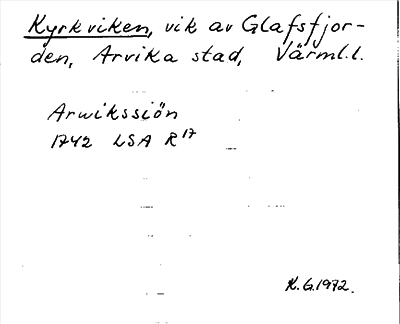 Kyrkviken, vik av Glafsfjor-
den, Arvika stad, Värml.l.
Arwikssiön
1742 LSA R17
K.G.1972.